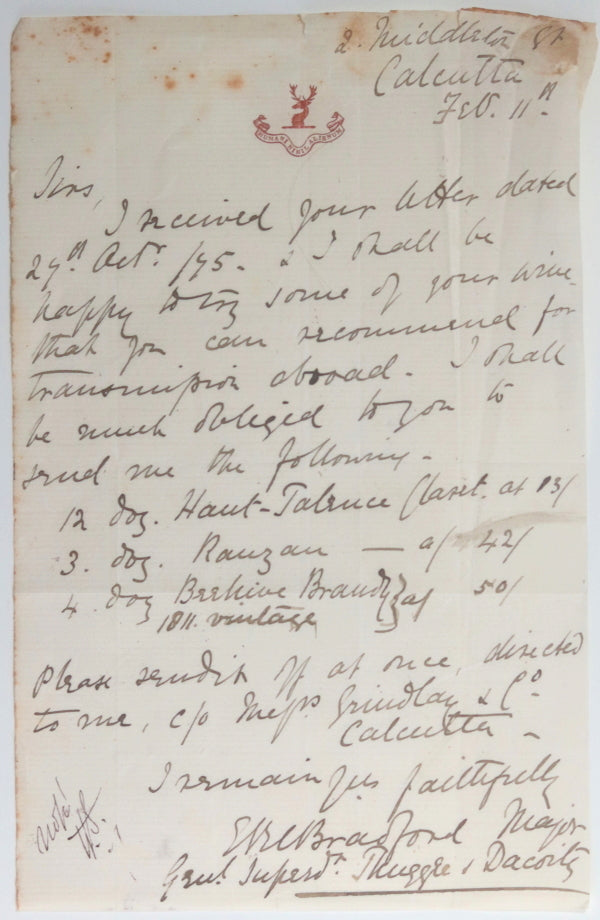 2. Middleton St
Calcutta
Feb. 11th
HUMANI NIHIL ALIENUM
Sirs,
I received your letter dated
27th Octr. /75 - & I shall be
happy to try some of your wine
that you can recommend for
transmission abroad. I shall
be much obliged to you to
send me the following -
12 doz. Haut-Talence Claret. at 13/
3. doz. Rauzan — a/ 42/
4. doz Beehive Brandy } a/ 50/
1811. vintage
Please send it off at once, directed
to me, c/o Messrs Grindlay & Co.
Calcutta -
I remain yrs faithfully
ERCBradford Major
Genl. Superdt. Thuggee & Dacoity
note!